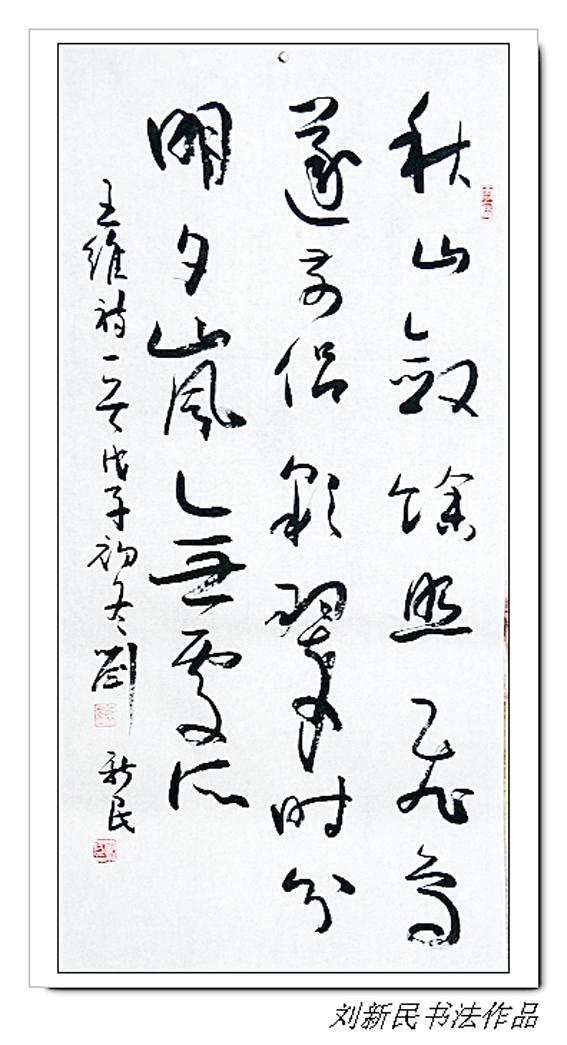 秋山斂餘照飛鳥
逐前侶彩翠時分
明夕嵐無處所
王維詩一首戊子初冬劉
新民
刘新民书法作品